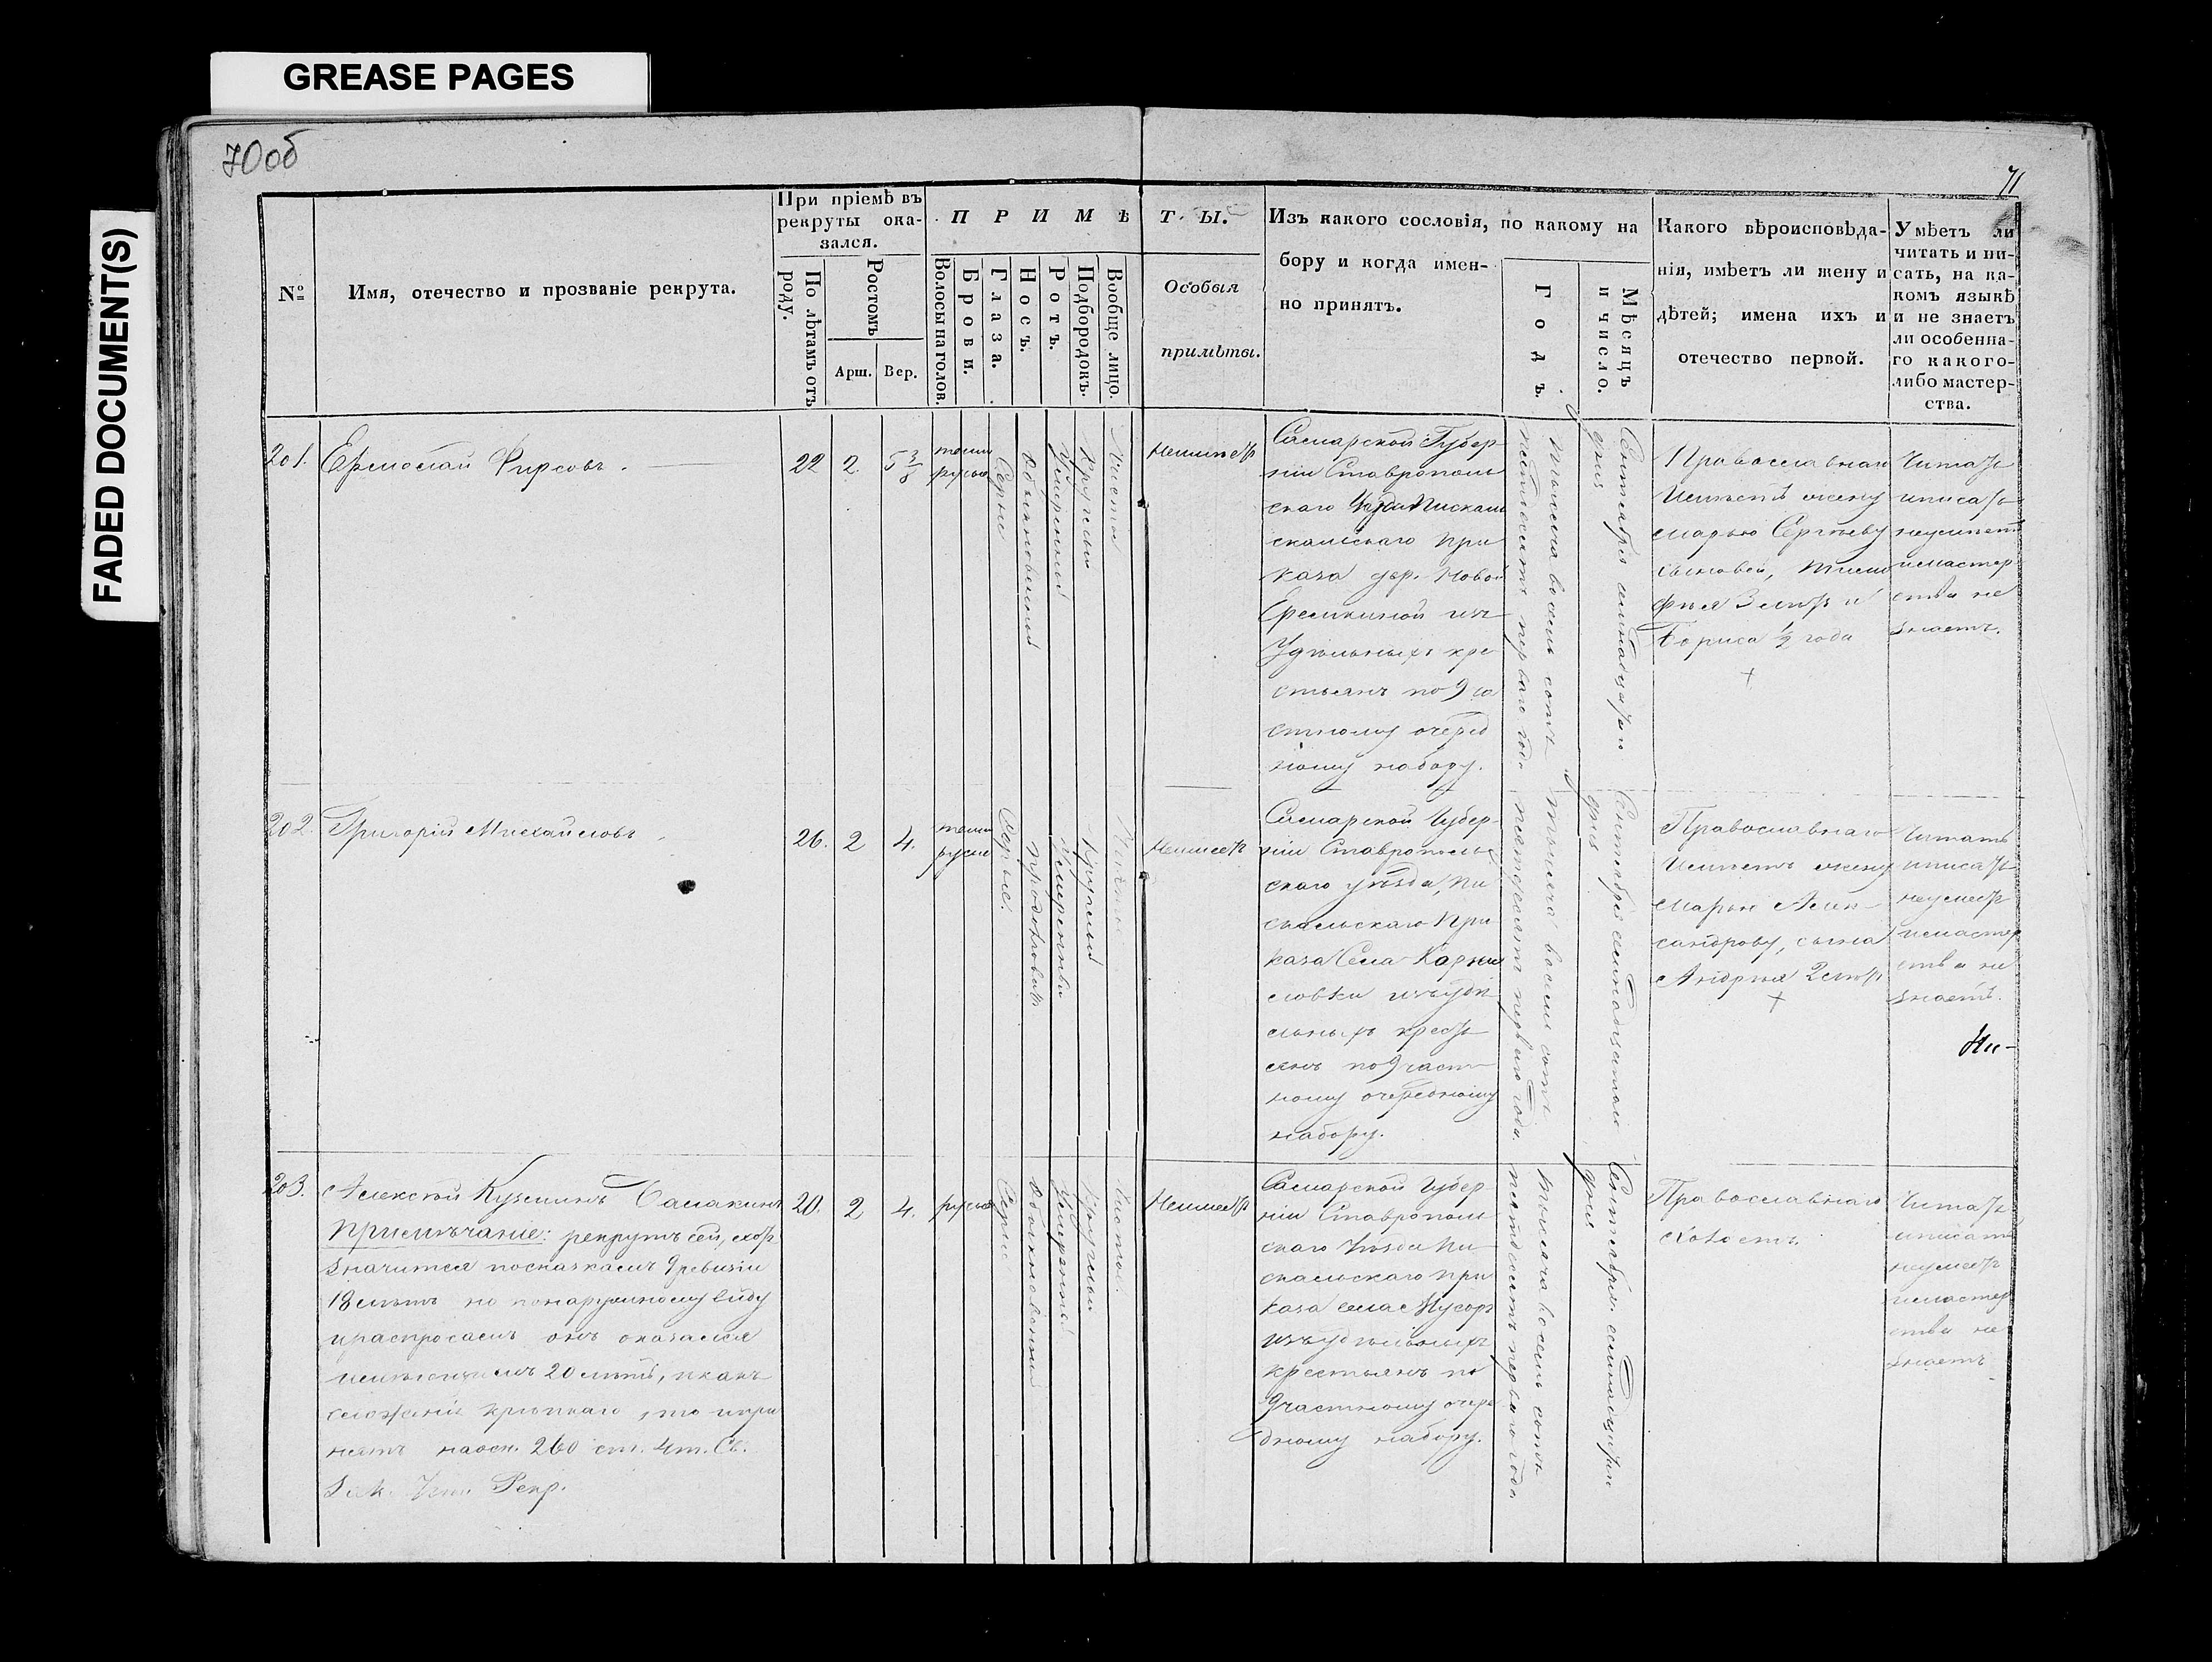 GREASE PAGES
FADED DOCUMENT(S)
70об
71
№
Имя, отечество и прозваніе рекрута.
При пріемѣ въ
рекруты ока-
зался.
По лѣтамъ отъ
роду.
Ростомъ
Арш.
Вер.
ПРИМѢТЫ.
Волосы на голов.
Брови.
Глаза.
Носъ.
Ротъ.
Подбородокъ.
Вообще лицо.
Особыя
примѣты.
Изъ какого сословія, по какому на
бору и когда имен-
но принятъ.
Годъ.
Мѣсяцъ
и число.
Какого вѣроисповѣда-
нія, имѣетъ ли жену и
дѣтей; имена ихъ и
отечество первой.
Умѣетъ ли
читать и пи-
сать, на ка-
комъ языкѣ
и не знаетъ
ли особенна-
го какого-
либо мастер-
ства.
201.
Ермолай Фирсовъ.
22
2.
5 3/8
темно
русые
Серые
Обыкновенный
Умеренный
Круглый
Чистое
Неимѣетъ
Самарской Губер
ніи Ставрополь
скаго
скальскаго При
каза дер. Новой
Еремкиной изъ
Удѣльныхъ кре
стьянъ по 9 ча
стному очеред
ному набору.
Тысяча восемь сотъ
пятьдесятъ перваго года
Сентября семнадцатаго
дня
Православнаго
Имѣетъ жену
Марью Сергѣеву
сыновей, Тимо
фея 3 лѣтъ и
Бориса 1/2 года
Читать
и писать
неумѣетъ
и мастер
ства не
знаетъ.
202.
Григорій Михайловъ
26.
2
4.
темно
русые
Серые.
продолговатъ
Умеренный
Круглый
Неимеетъ
Самарской Губер-
ніи Ставрополь
скаго уѣзда, Пи
скальскаго При
каза Села
словки изъ удѣ
льныхъ кресть
янъ по 9 част
ному очередному
набору.
тысяча восемь сотъ
пятдесятъ перваго года.
Сентября семнадцатаго
дня
Православнаго
Имѣетъ жену
Марью Алек-
сандрову, сына
Андрея 2 лѣтъ
Читать
и писать
неумеетъ
и мастер
ства не
знаетъ.
Ни-
203.
Алексѣй Кузминъ
Примѣчаніе: рекрутъ сей, хотя
значится по сказкамъ 9 ревизіи
18 лѣтъ но по наружному виду
и распросамъ онъ оказался
имѣющимъ 20 лѣтъ, и какъ
сложенія крѣпкаго, то и при
нятъ на осн. 260 ст. 4 т. Св.
Зак. Уст. Рекр.
20.
2
4.
русые
Серые
обыкновенный
Умеренный
Круглый
Чистое.
Неимеетъ
Самарской Губер
ніи Ставрополь
скаго Уѣзда Пи
скальскаго При
каза села Мусоръ
изъ удѣльныхъ
крестьянъ по
9 частному очере
дному набору.
тысяча восемь сотъ
пятдесятъ перваго года.
Сентября семнадцатаго
дня
Православнаго
Холостъ.
Читать
и писать
неумеетъ
и мастер
ства не
знаетъ